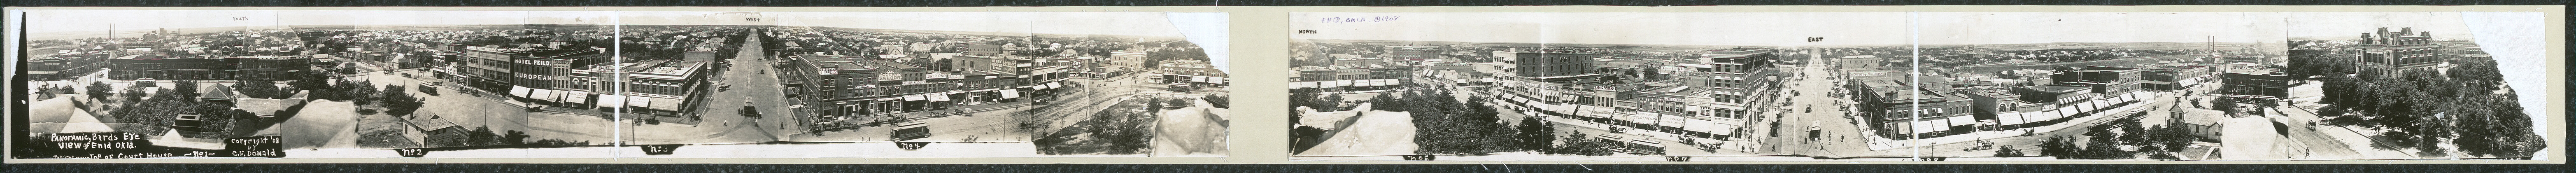 South
West
HOTEL FEILD
EUROPEAN
PANORAMIC, BIRDS EYE
VIEW of ENID OKLA.
TOP of COURT HOUSE
-No1-
COPYRIGHT '08
C.F. DONALD
No 2
No 3
No 4
ENID, OKLA
NORTH
EAST